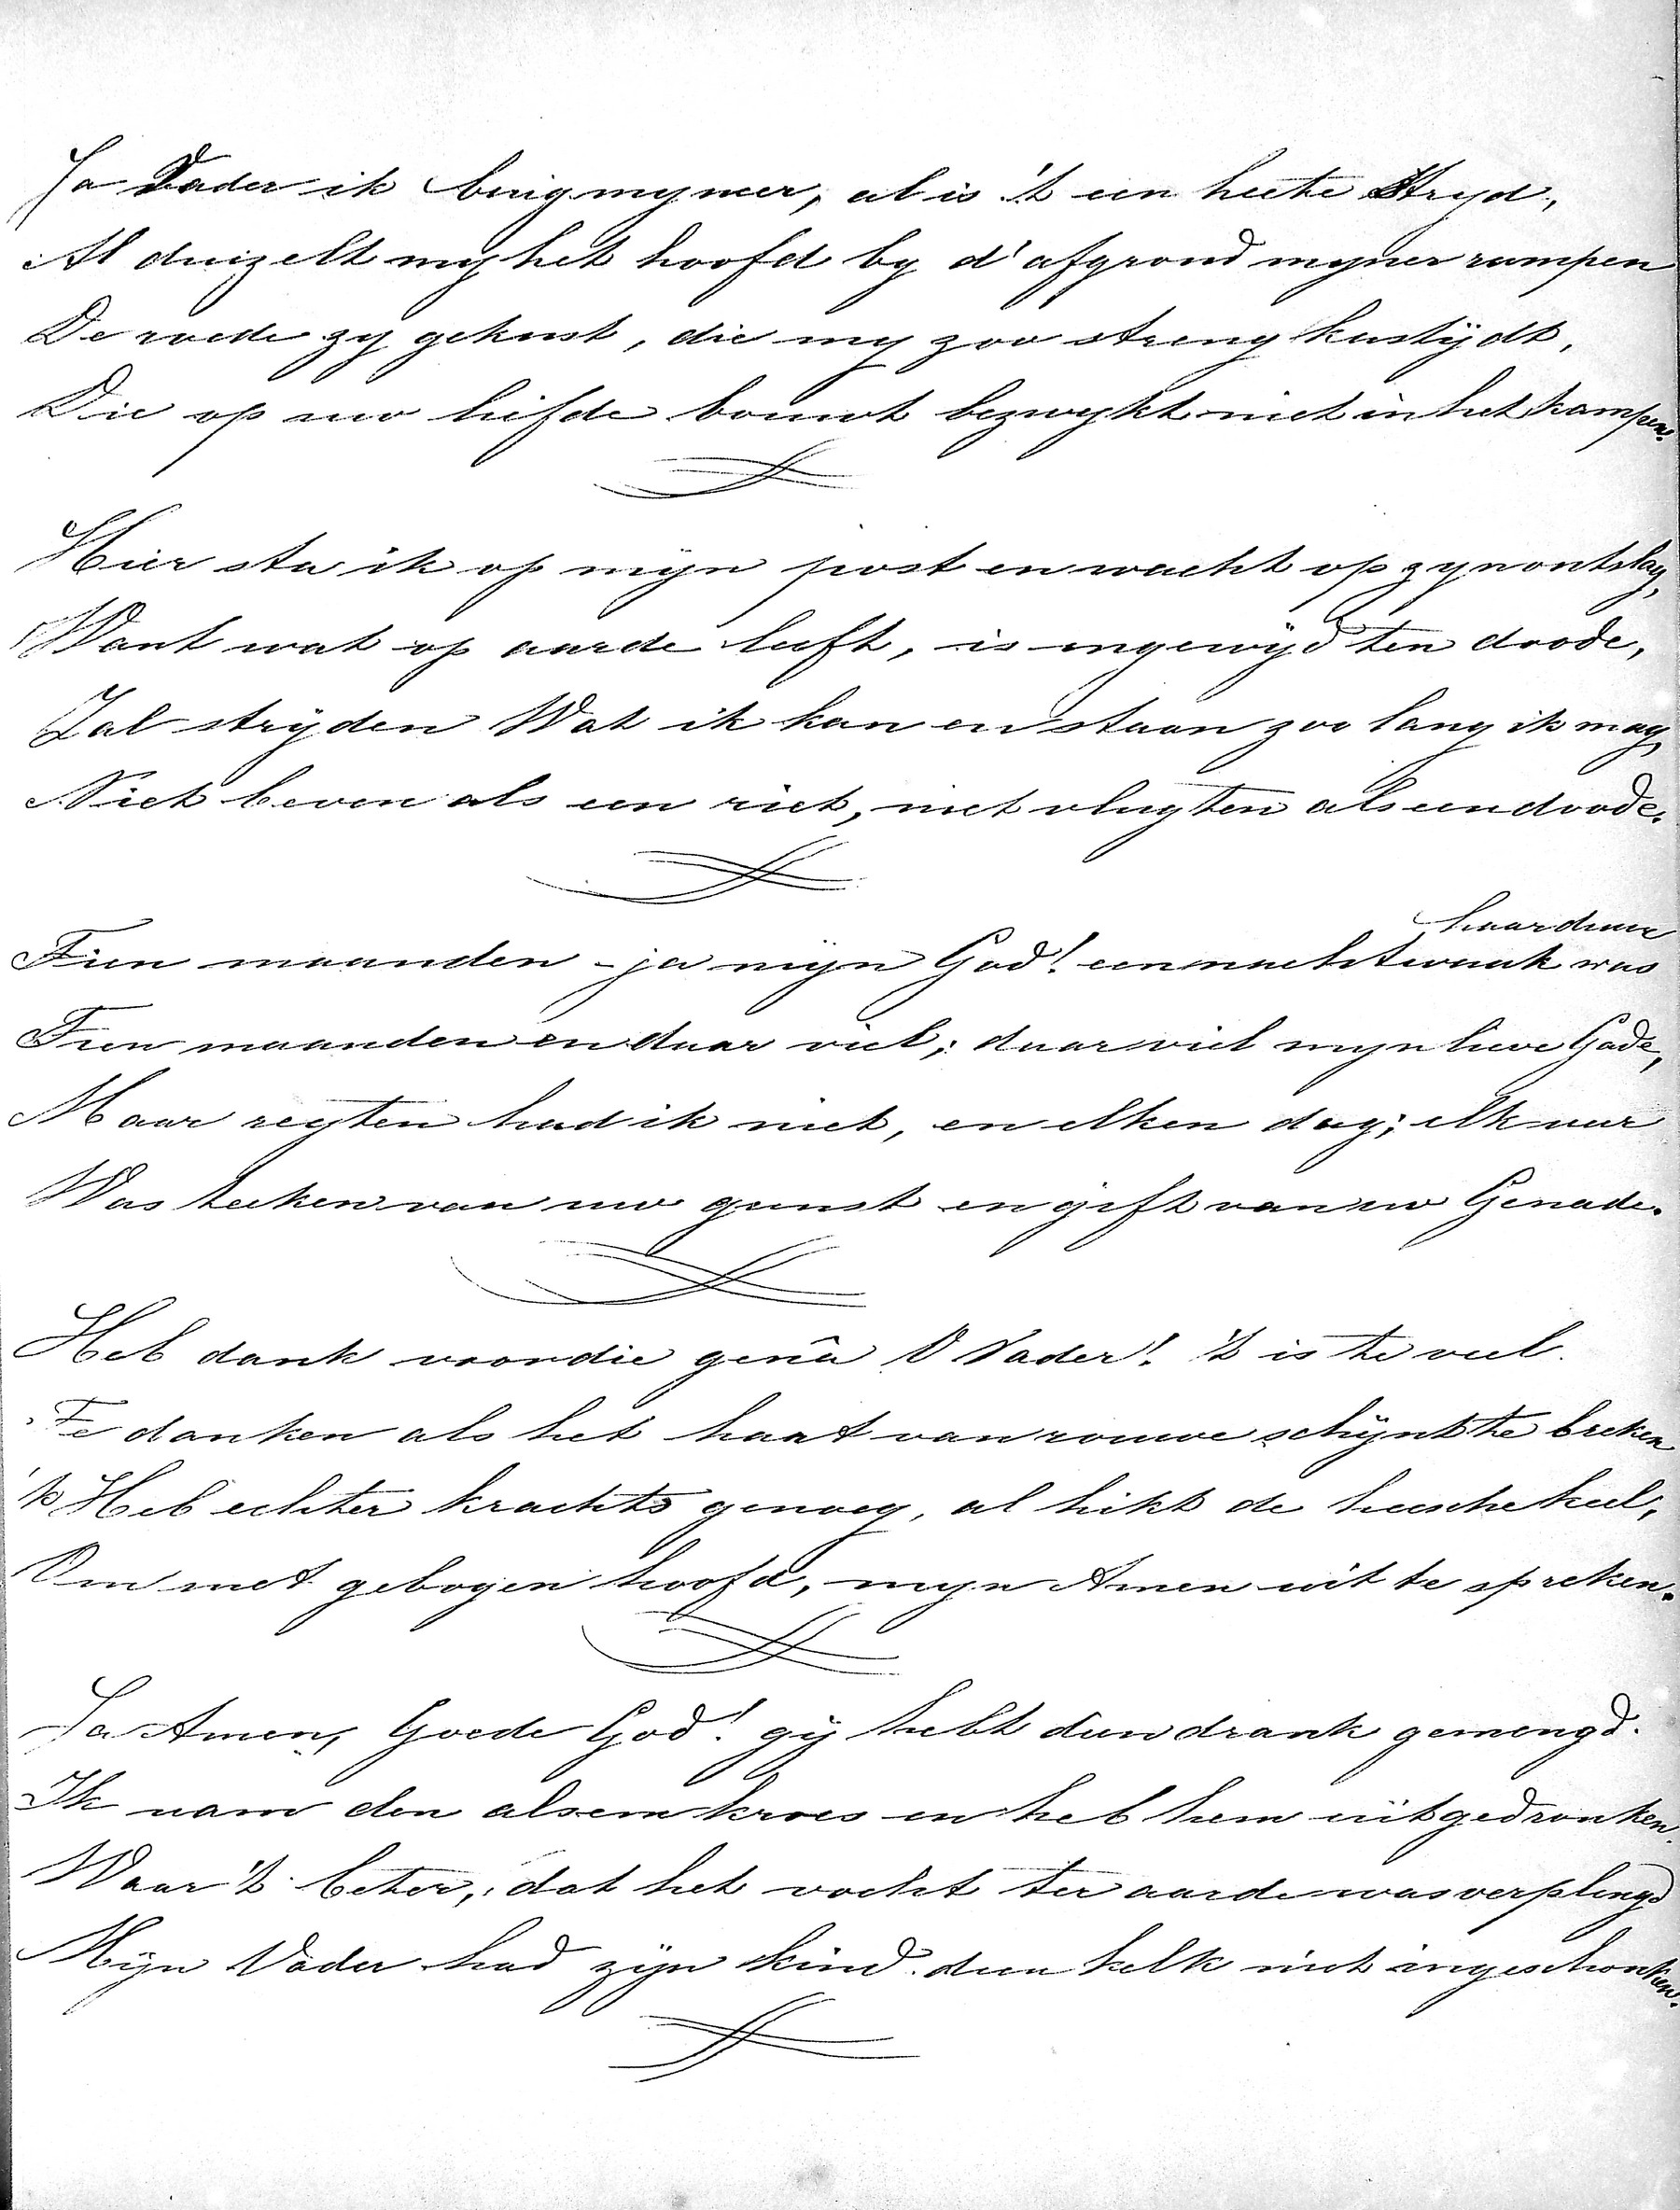 Ja Vader ik buig my neer, al is 't een heete Stryd,
Al duizelt my het hoofd by d'afgrond myner rampen
De roede zy gekust, die my zoo streng kastydt,
Die op uw liefde bouwt bezwykt niet in het kampen.
Hier sta ik op mijn post en wacht op zyn ontslag,
Want wat op aarde leeft, is ingewijd ten doode,
Zal strijden Wat ik kan en staan zoo lang ik mag,
Niet beven als een riet, niet vlugten als een doode.
haar duur
Tien maanden - ja mijn God! een nachtwaak was
Tien maanden en daar viel, daar viel myn lieve Gade,
Maar regten had ik niet, en elken dag; elk uur
Was teeken van uw gunst en gift van uw Genade.
Heb dank voor die genâ O Vader! 't is te veel.
Te danken als het hart van rouwe schijnt te breken
'k Heb echter krachts genoeg, al hikt de heesche keel,
Om met gebogen hoofd, myn Amen uit te spreken.
Ja Amen, Goede God! gij hebt dien drank gemengd.
Ik nam den alsem kroes en heb hem uitgedronken.
Waar 't beter, dat het vocht ter aarde was verplengd
Mijn Vader had zijn kind dien kelk niet ingeschonken.